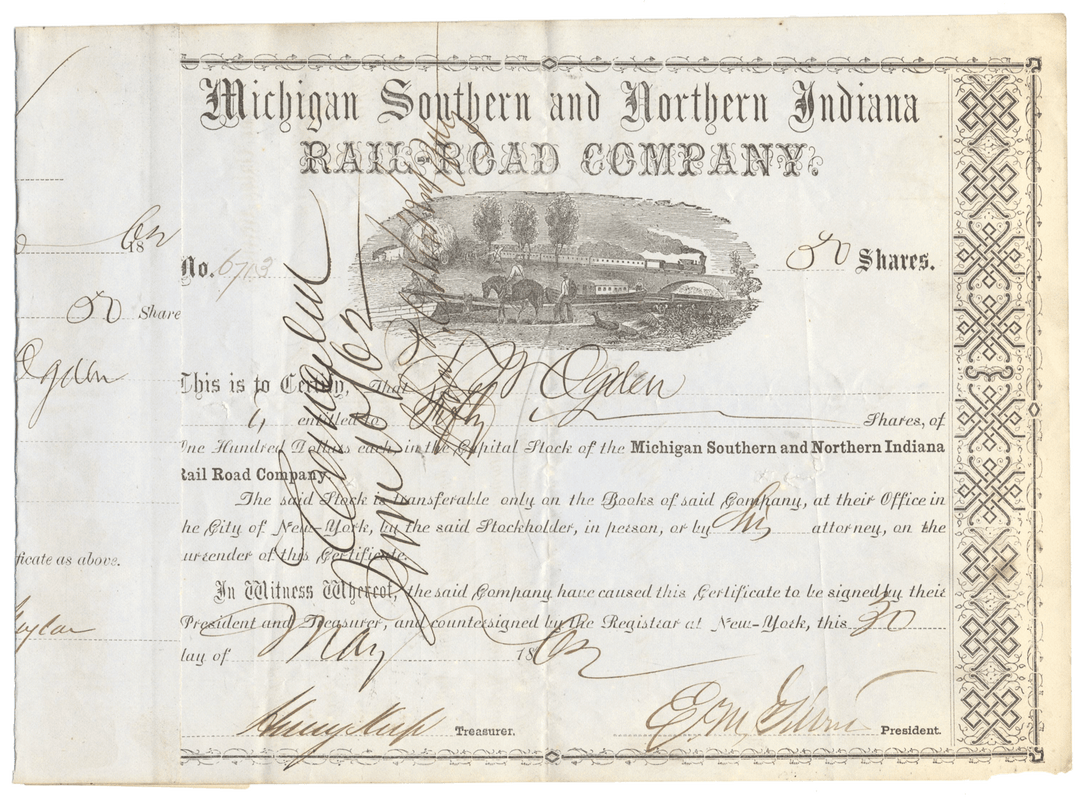 Michigan Southern and Northern Indiana
RAIL-ROAD COMPANY.
1862
No. 6703
50 Shares.
50 Share
Ogden
This is to Certify, That W Ogden
is entitled to Fifty Shares, of
One Hundred Dollars each, in the Capital Stock of the Michigan Southern and Northern Indiana
Rail Road Company
The said Stock is transferable only on the Books of said Company, at their Office in
he City of New-York, by the said Stockholder, in person, or by his attorney, on the
urrender of this Certificate.
ficate as above.
In Witness Whereof, the said Company have caused this Certificate to be signed by their
President and Treasurer, and countersigned by the Registrar at New-York, this 30
day of May 1862
Henry Keep Treasurer.
President.
Cancelled
June 10/62